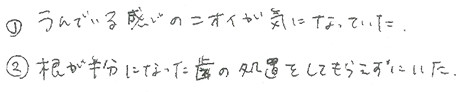 ① うんでいる感じのニオイが気になっていた.
② 根が半分になった歯の処置をしてもらえずにいた.